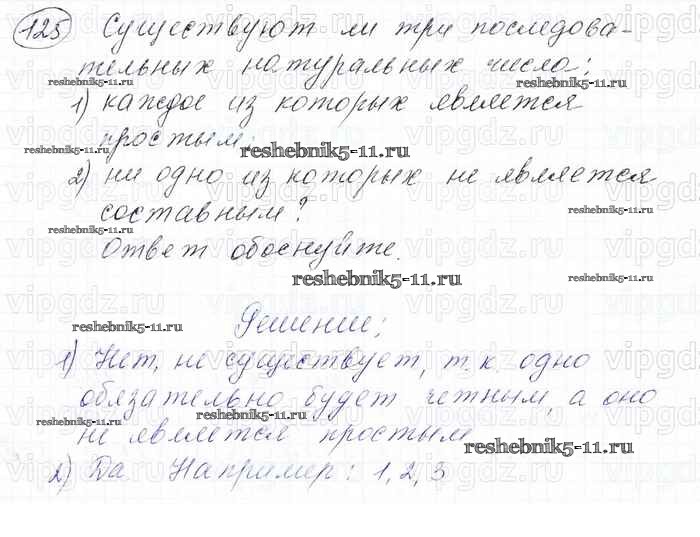 125 Существуют ли три последова-
тельных натуральных числа:
1) каждое из которых является
простым;
2) ни одно из которых не является
составным?
Ответ обоснуйте.
Решение:
1) Нет, не существует, т.к. одно
обязательно будет четным, а оно
не является простым
2) Да. Например: 1, 2, 3
reshebnik5-11.ru
reshebnik5-11.ru
reshebnik5-11.ru
reshebnik5-11.ru
reshebnik5-11.ru
reshebnik5-11.ru
reshebnik5-11.ru
reshebnik5-11.ru
reshebnik5-11.ru
reshebnik5-11.ru
reshebnik5-11.ru
reshebnik5-11.ru
reshebnik5-11.ru
vipgdz.ru